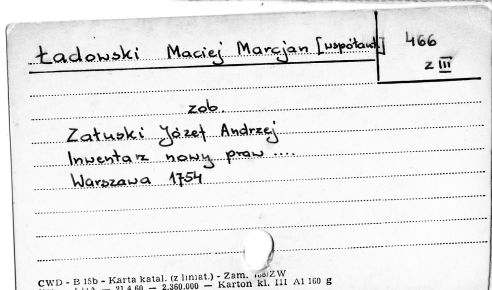 Ładowski Maciej Marcjan [współaut.]
466
z III
zob.
Załuski Józef Andrzej
Inwentarz nowy praw ....
Warszawa 1754
CWD - B 15b - Karta katal. (z liniat.) - Zam. ZW
21.4.60 — 2.360.000 — Karton kl. III A1 160 g